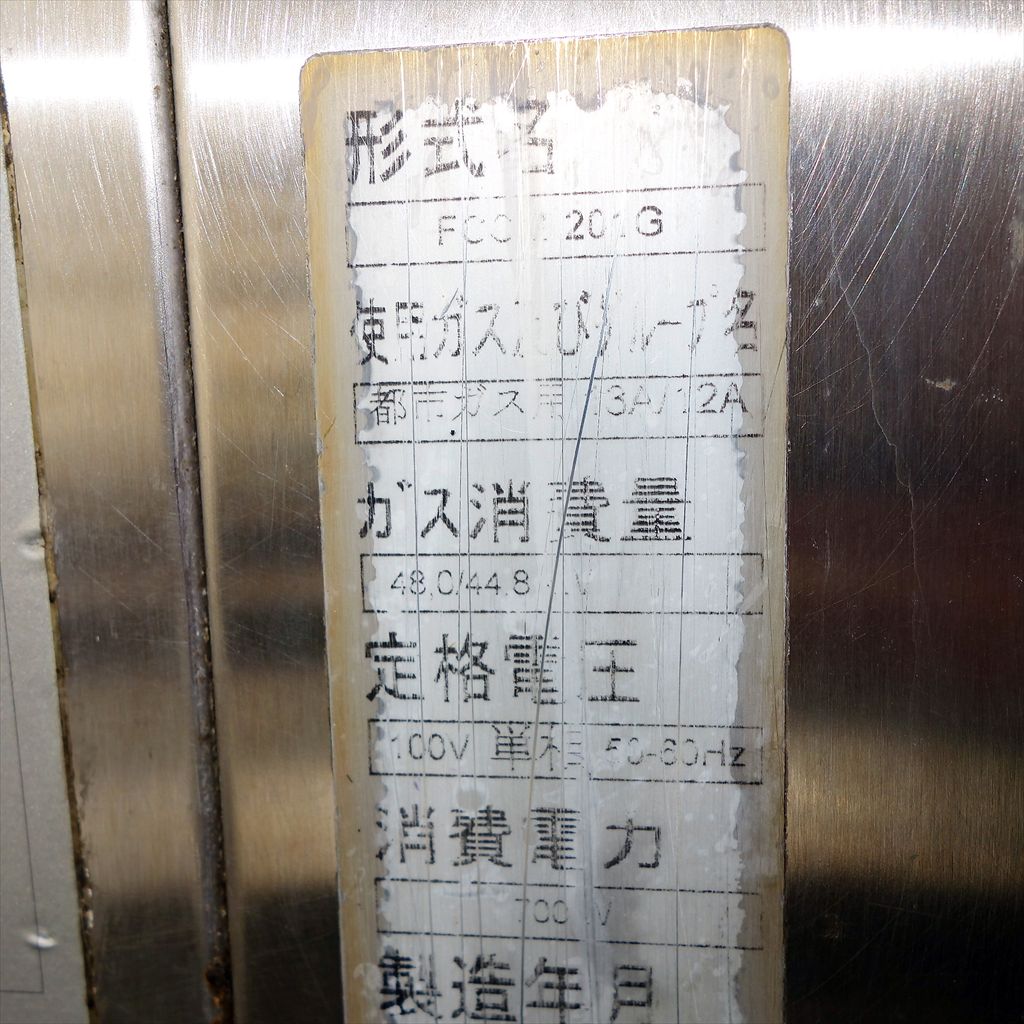 形式名
使用ガス及びグループ名
都市ガス用 13A/12A
ガス消費量
48.0/44.8
定格電圧
100V 単相 50-60Hz
消費電力
700
製造年月